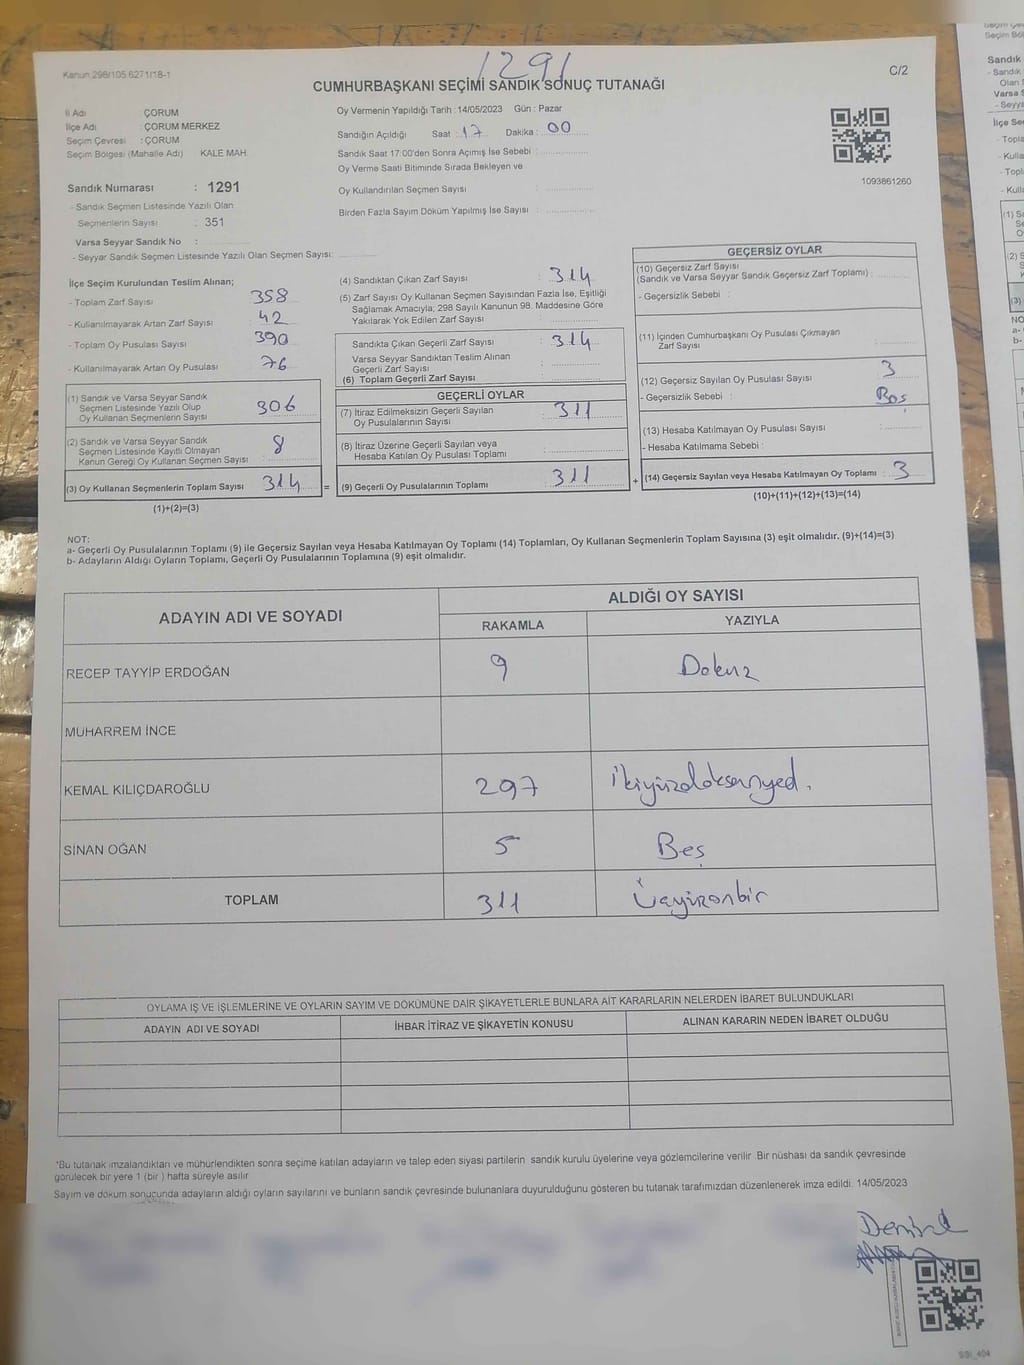 1291
Kanun 298/105 6271/18-1
C/2
CUMHURBAŞKANI SEÇİMİ SANDIK SONUÇ TUTANAĞI
İl Adı ÇORUM
İlçe Adı : ÇORUM MERKEZ
Seçim Çevresi : ÇORUM
Seçim Bölgesi (Mahalle Adı) KALE MAH.
Sandık Numarası : 1291
- Sandık Seçmen Listesinde Yazılı Olan
Seçmenlerin Sayısı : 351
Varsa Seyyar Sandık No :
- Seyyar Sandık Seçmen Listesinde Yazılı Olan Seçmen Sayısı:
Oy Vermenin Yapıldığı Tarih : 14/05/2023 Gün : Pazar
Sandığın Açıldığı Saat : 17 Dakika : 00
Sandık Saat 17:00'den Sonra Açımış İse Sebebi :
Oy Verme Saati Bitiminde Sırada Bekleyen ve
Oy Kullandırılan Seçmen Sayısı :
Birden Fazla Sayım Döküm Yapılmış İse Sayısı :
1093861260
İlçe Seçim Kurulundan Teslim Alınan;
- Toplam Zarf Sayısı 358
- Kullanılmayarak Artan Zarf Sayısı 42
- Toplam Oy Pusulası Sayısı 390
- Kullanılmayarak Artan Oy Pusulası 76
(1) Sandık ve Varsa Seyyar Sandık
Seçmen Listesinde Yazılı Olup
Oy Kullanan Seçmenlerin Sayısı 306
(2) Sandık ve Varsa Seyyar Sandık
Seçmen Listesinde Kayıtlı Olmayan
Kanun Gereği Oy Kullanan Seçmen Sayısı 8
(3) Oy Kullanan Seçmenlerin Toplam Sayısı 314 =
(1)+(2)=(3)
(4) Sandıktan Çıkan Zarf Sayısı : 314
(5) Zarf Sayısı Oy Kullanan Seçmen Sayısından Fazla İse, Eşitliği
Sağlamak Amacıyla; 298 Sayılı Kanunun 98. Maddesine Göre
Yakılarak Yok Edilen Zarf Sayısı :
Sandıkta Çıkan Geçerli Zarf Sayısı : 314
Varsa Seyyar Sandıktan Teslim Alınan
Geçerli Zarf Sayısı :
(6) Toplam Geçerli Zarf Sayısı :
GEÇERLİ OYLAR
(7) İtiraz Edilmeksizin Geçerli Sayılan
Oy Pusulalarının Sayısı : 311
(8) İtiraz Üzerine Geçerli Sayılan veya
Hesaba Katılan Oy Pusulası Toplamı :
(9) Geçerli Oy Pusulalarının Toplamı : 311 +
GEÇERSİZ OYLAR
(10) Geçersiz Zarf Sayısı
(Sandık ve Varsa Seyyar Sandık Geçersiz Zarf Toplamı) :
- Geçersizlik Sebebi :
(11) İçinden Cumhurbaşkanı Oy Pusulası Çıkmayan
Zarf Sayısı :
(12) Geçersiz Sayılan Oy Pusulası Sayısı : 3
- Geçersizlik Sebebi : Boş
(13) Hesaba Katılmayan Oy Pusulası Sayısı :
- Hesaba Katılmama Sebebi :
(14) Geçersiz Sayılan veya Hesaba Katılmayan Oy Toplamı : 3
(10)+(11)+(12)+(13)=(14)
NOT:
a- Geçerli Oy Pusulalarının Toplamı (9) ile Geçersiz Sayılan veya Hesaba Katılmayan Oy Toplamı (14) Toplamları, Oy Kullanan Seçmenlerin Toplam Sayısına (3) eşit olmalıdır. (9)+(14)=(3)
b- Adayların Aldığı Oyların Toplamı, Geçerli Oy Pusulalarının Toplamına (9) eşit olmalıdır.
ADAYIN ADI VE SOYADI ALDIĞI OY SAYISI
RAKAMLA YAZIYLA
RECEP TAYYİP ERDOĞAN 9 Dokuz
MUHARREM İNCE
KEMAL KILIÇDAROĞLU 297 İkiyüzdoksanyedi
SİNAN OĞAN 5 Beş
TOPLAM 311 Üçyüzonbir
OYLAMA İŞ VE İŞLEMLERİNE VE OYLARIN SAYIM VE DÖKÜMÜNE DAİR ŞİKAYETLERLE BUNLARA AİT KARARLARIN NELERDEN İBARET BULUNDUKLARI
ADAYIN ADI VE SOYADI İHBAR İTİRAZ VE ŞİKAYETİN KONUSU ALINAN KARARIN NEDEN İBARET OLDUĞU
*Bu tutanak imzalandıktan ve mühürlendikten sonra seçime katılan adayların ve talep eden siyasi partilerin sandık kurulu üyelerine veya gözlemcilerine verilir. Bir nüshası da sandık çevresinde
görülecek bir yere 1 (bir ) hafta süreyle asılır.
Sayım ve döküm sonucunda adayların aldığı oyların sayılarını ve bunların sandık çevresinde bulunanlara duyurulduğunu gösteren bu tutanak tarafımızdan düzenlenerek imza edildi. 14/05/2023